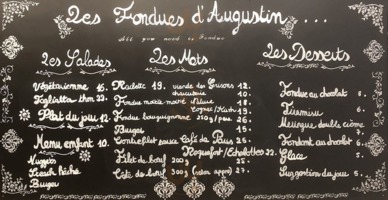 Les Fondues d'Augustin ...
All you need is Fondue
Les Salades
Végétarienne 16.
Taglietta thm 22.
Plat du jour 12.
Menu enfant 10.
Nuggets
Steack Haché
Burger
Les Mets
Raclette 19. viande des Grisons 12.
charcuterie 10.
Fondue moitié moitié
Fondue bourguignonne 250g/pers 26.
Burger 15.
Contrefilet sauce Café de Paris 26.
Roquefort/Echalottes 22.
Filet de bœuf 200g
Côte de bœuf 300g
Les Desserts
Fondue au chocolat 8.
Tiramisu
Meringue double crème 7.
Fondant au chocolat 9.
Glace
Suggestion du jour 5.